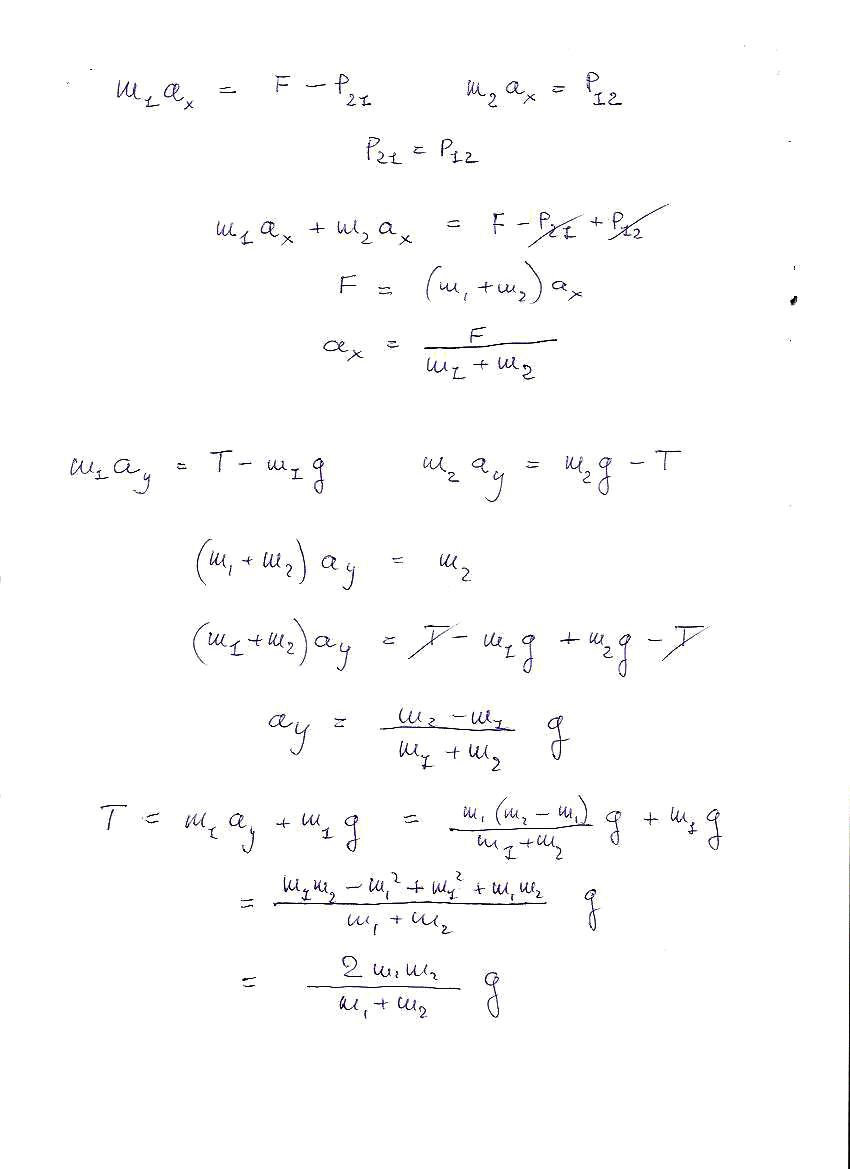 m₁aₓ = F − P₂₁ m₂aₓ = P₁₂
P₂₁ = P₁₂
m₁aₓ + m₂aₓ = F − P₂₁ + P₁₂
F = (m₁ + m₂) aₓ
aₓ = F / (m₁ + m₂)
m₁a_y = T − m₁g m₂a_y = m₂g − T
(m₁ + m₂) a_y = m₂
(m₁ + m₂) a_y = T − m₁g + m₂g − T
a_y = (m₂ − m₁) / (m₁ + m₂) g
T = m₁a_y + m₁g = m₁(m₂ − m₁) / (m₁ + m₂) g + m₁g
= (m₁m₂ − m₁² + m₁² + m₁m₂) / (m₁ + m₂) g
= 2m₁m₂ / (m₁ + m₂) g